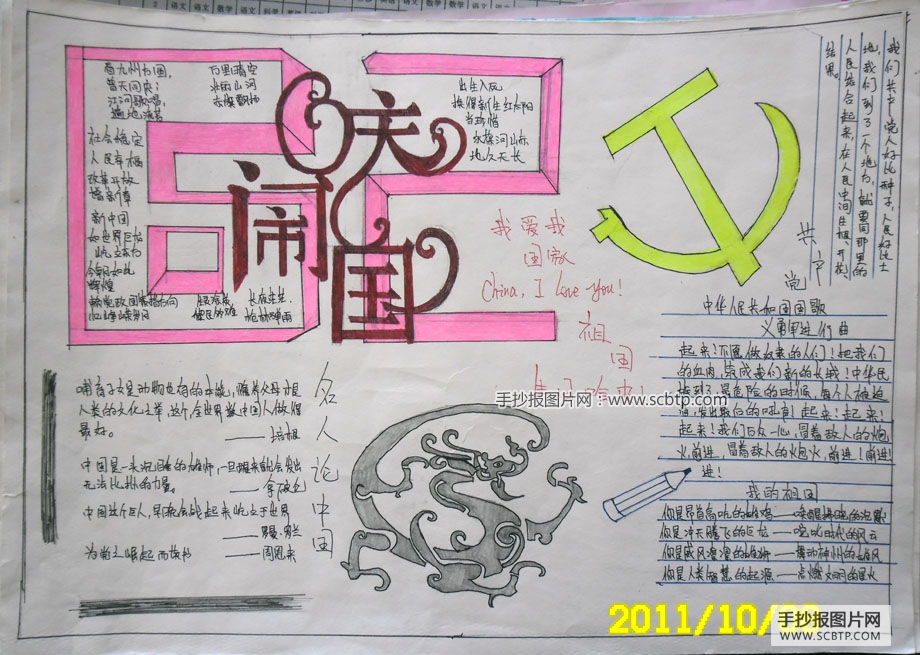 看九州方圆，
普天同庆；
江河歌唱，
遍地流芳
万里晴空
壮丽山河
赤旗飘扬
社会稳定
人民幸福
改革开放
谱新章
新中国
如世界巨龙
屹立东方
今朝如此
辉煌
欢庆
闹
国
永葆河山赤
地久天长
我们共产党人好比种子，人民好比土
地。我们到了一个地方，就要同那里的
人民结合起来，在人民中间生根、开花
结果。
我爱我
国徽
China, I love you!
祖
国
生日
共
党
中华人民共和国国歌
义勇军进行曲
起来！不愿做奴隶的人们！把我们
的血肉，筑成我们新的长城！中华民
族到了最危险的时候，每个人被迫
着发出最后的吼声！起来！起来！
起来！我们万众一心，冒着敌人的炮
火前进，冒着敌人的炮火，前进！前进！
进！
名人论中国
哺育子女是动物也有的本能，赡养父母才是
人类的文化之举，这个全世界数中国人做得
最好。
——培根
中国是一头沉睡的雄狮，一旦醒来就会发出
无法比拟的力量。
——拿破仑
中国这个巨人，早晚会站起来屹立于世界
——罗曼·罗兰
为中华崛起而读书
——周恩来
我的祖国
你是昂首高吭的雄鸡——唤醒拂晓的沉默
你是冲天腾飞的巨龙——叱咤时代的风云
你是威风凛凛的雄狮——舞动神州的雄风
你是人类智慧的起源——点燃文明的星火
手抄报图片网：www.scbtp.com
2011/10/
手抄报图片网
WWW.SCBTP.COM